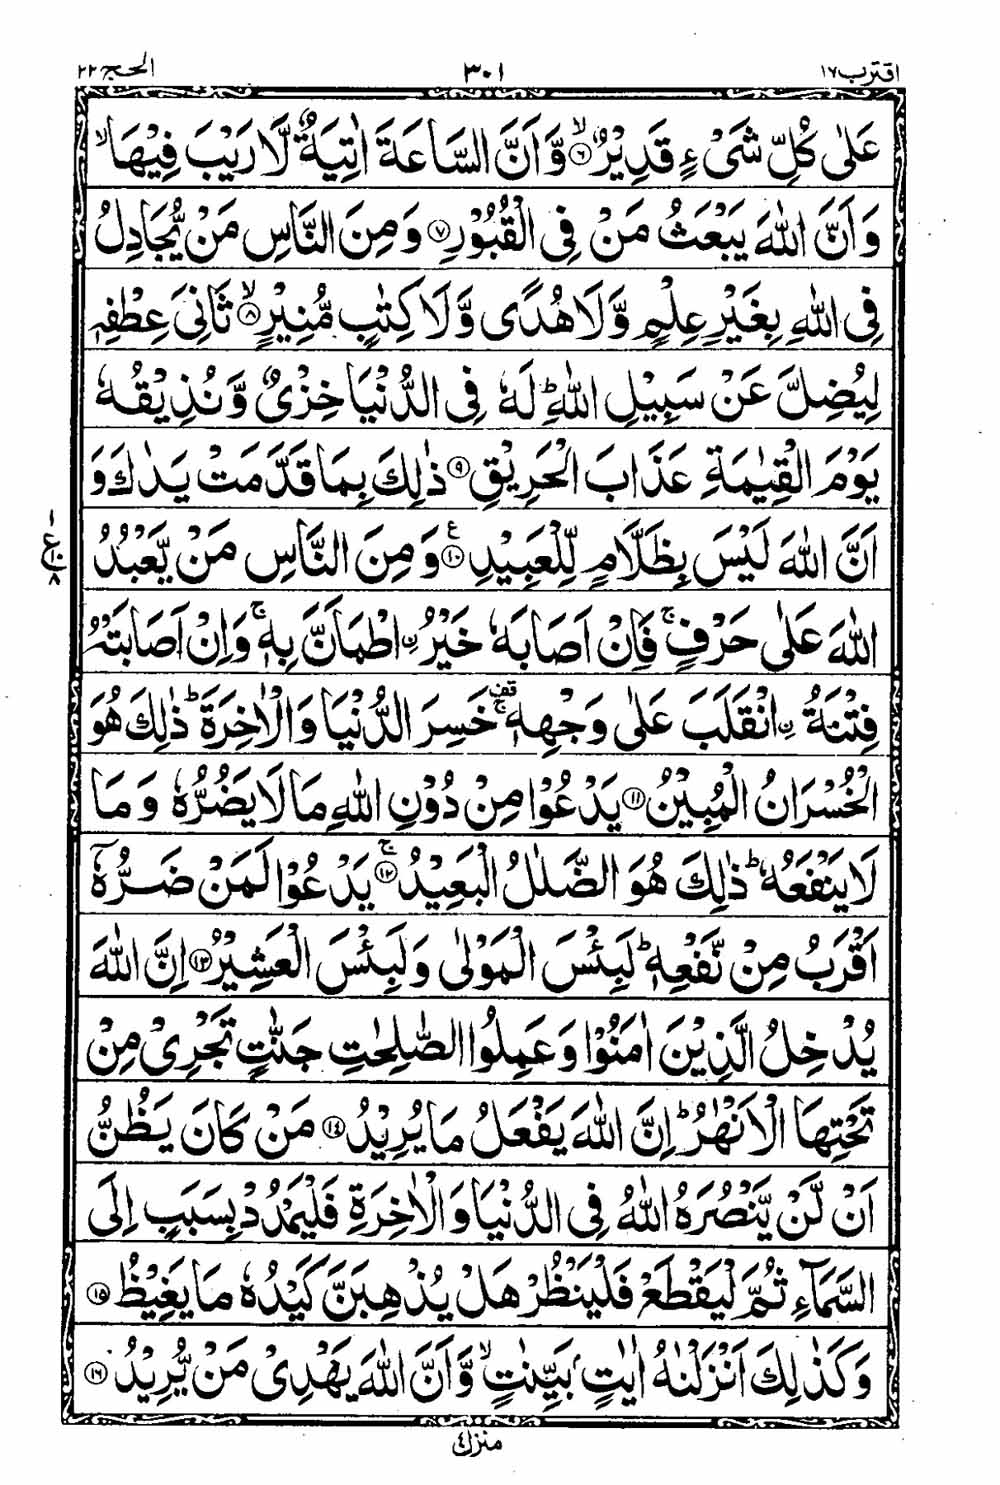 اقترب ١٧
٣٠١
الحج ٢٢
عَلٰى كُلِّ شَیْءٍ قَدِيْرٌ ۙ﴿٦﴾ وَّاَنَّ السَّاعَةَ اٰتِيَةٌ لَّا رَيْبَ فِيْهَا ۙ
وَاَنَّ اللّٰهَ يَبْعَثُ مَنْ فِى الْقُبُوْرِ ﴿٧﴾ وَمِنَ النَّاسِ مَنْ يُّجَادِلُ
فِى اللّٰهِ بِغَيْرِ عِلْمٍ وَّلَا هُدًى وَّلَا كِتٰبٍ مُّنِيْرٍ ۙ﴿٨﴾ ثَانِىَ عِطْفِهٖ
لِيُضِلَّ عَنْ سَبِيْلِ اللّٰهِ ؕ لَهٗ فِى الدُّنْيَا خِزْىٌ وَّنُذِيْقُهٗ
يَوْمَ الْقِيٰمَةِ عَذَابَ الْحَرِيْقِ ﴿٩﴾ ذٰلِكَ بِمَا قَدَّمَتْ يَدٰكَ وَ
اَنَّ اللّٰهَ لَيْسَ بِظَلَّامٍ لِّلْعَبِيْدِ ﴿١٠﴾ع وَمِنَ النَّاسِ مَنْ يَّعْبُدُ
١
ع
٨
اللّٰهَ عَلٰى حَرْفٍ ۚ فَاِنْ اَصَابَهٗ خَيْرُ ۨاطْمَاَنَّ بِهٖ ۚ وَاِنْ اَصَابَتْهُ
فِتْنَةُ ۨانْقَلَبَ عَلٰى وَجْهِهٖ ۚ قف خَسِرَ الدُّنْيَا وَالْاٰخِرَةَ ؕ ذٰلِكَ هُوَ
الْخُسْرَانُ الْمُبِيْنُ ﴿١١﴾ يَدْعُوْا مِنْ دُوْنِ اللّٰهِ مَا لَا يَضُرُّهٗ وَمَا
لَا يَنْفَعُهٗ ؕ ذٰلِكَ هُوَ الضَّلٰلُ الْبَعِيْدُ ۚ﴿١٢﴾ يَدْعُوْا لَمَنْ ضَرُّهٗۤ
اَقْرَبُ مِنْ نَّفْعِهٖ ؕ لَبِئْسَ الْمَوْلٰى وَلَبِئْسَ الْعَشِيْرُ ﴿١٣﴾ اِنَّ اللّٰهَ
يُدْخِلُ الَّذِيْنَ اٰمَنُوْا وَعَمِلُوا الصّٰلِحٰتِ جَنّٰتٍ تَجْرِىْ مِنْ
تَحْتِهَا الْاَنْهٰرُ ؕ اِنَّ اللّٰهَ يَفْعَلُ مَا يُرِيْدُ ﴿١٤﴾ مَنْ كَانَ يَظُنُّ
اَنْ لَّنْ يَّنْصُرَهُ اللّٰهُ فِى الدُّنْيَا وَالْاٰخِرَةِ فَلْيَمْدُدْ بِسَبَبٍ اِلَى
السَّمَآءِ ثُمَّ لْيَقْطَعْ فَلْيَنْظُرْ هَلْ يُذْهِبَنَّ كَيْدُهٗ مَا يَغِيْظُ ﴿١٥﴾
وَكَذٰلِكَ اَنْزَلْنٰهُ اٰيٰتٍۭ بَيِّنٰتٍ ۙ وَّاَنَّ اللّٰهَ يَهْدِىْ مَنْ يُّرِيْدُ ﴿١٦﴾
منزل ٤